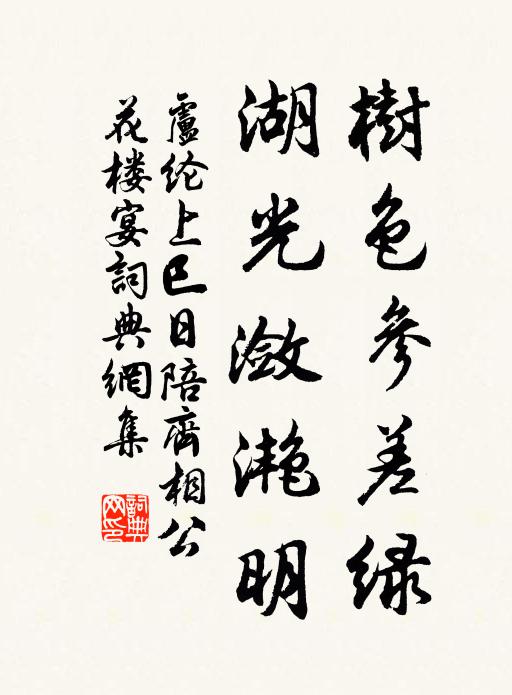 樹色參差綠
湖光潋滟明
盧纶上巳日陪齊相公
花楼宴詞典網集
詞典
网印